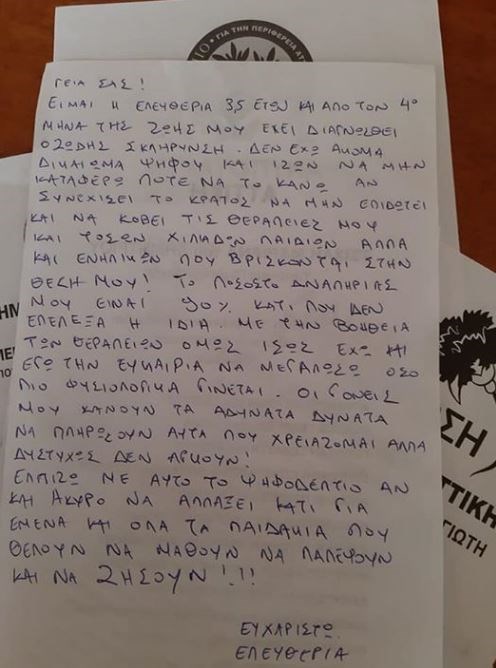 ΙΟ • ΓΙΑ ΤΗΝ ΠΕΡΙΦΕΡΕΙΑ ΑΤ
ΓΕΙΑ ΣΑΣ!
ΕΙΜΑΙ Η ΕΛΕΥΘΕΡΙΑ 3,5 ΕΤΩΝ ΚΑΙ ΑΠΟ ΤΟΝ 4º
ΜΗΝΑ ΤΗΣ ΖΩΗΣ ΜΟΥ ΕΧΕΙ ΔΙΑΓΝΩΣΘΕΙ
ΟΖΩΔΗΣ ΣΚΛΗΡΥΝΣΗ. ΔΕΝ ΕΧΩ ΑΚΟΜΑ
ΔΙΚΑΙΩΜΑ ΨΗΦΟΥ ΚΑΙ ΙΣΩΣ ΝΑ ΜΗΝ
ΚΑΤΑΦΕΡΩ ΠΟΤΕ ΝΑ ΤΟ ΚΑΝΩ ΑΝ
ΣΥΝΕΧΙΣΕΙ ΤΟ ΚΡΑΤΟΣ ΝΑ ΜΗΝ ΕΠΙΔΟΤΕΙ
ΚΑΙ ΝΑ ΚΟΒΕΙ ΤΙΣ ΘΕΡΑΠΕΙΕΣ ΜΟΥ
ΚΑΙ ΤΟΣΩΝ ΧΙΛΙΑΔΩΝ ΠΑΙΔΙΩΝ ΑΛΛΑ
ΚΑΙ ΕΝΗΛΙΚΩΝ ΠΟΥ ΒΡΙΣΚΟΝΤΑΙ ΣΤΗΝ
ΘΕΣΗ ΜΟΥ! ΤΟ ΠΟΣΟΣΤΟ ΑΝΑΠΗΡΙΑΣ
ΜΟΥ ΕΙΝΑΙ 90% ΚΑΤΙ ΠΟΥ ΔΕΝ
ΕΠΕΛΕΞΑ Η ΙΔΙΑ. ΜΕ ΤΗΝ ΒΟΗΘΕΙΑ
ΤΩΝ ΘΕΡΑΠΕΙΩΝ ΟΜΩΣ ΙΣΩΣ ΕΧΩ ΚΑΙ
ΕΓΩ ΤΗΝ ΕΥΚΑΙΡΙΑ ΝΑ ΜΕΓΑΛΩΣΩ ΟΣΟ
ΠΙΟ ΦΥΣΙΟΛΟΓΙΚΑ ΓΙΝΕΤΑΙ. ΟΙ ΓΟΝΕΙΣ
ΜΟΥ ΚΑΝΟΥΝ ΤΑ ΑΔΥΝΑΤΑ ΔΥΝΑΤΑ
ΝΑ ΠΛΗΡΩΣΟΥΝ ΑΥΤΑ ΠΟΥ ΧΡΕΙΑΖΟΜΑΙ ΑΛΛΑ
ΔΥΣΤΥΧΩΣ ΔΕΝ ΑΡΚΟΥΝ!
ΕΛΠΙΖΩ ΜΕ ΑΥΤΟ ΤΟ ΨΗΦΟΔΕΛΤΙΟ ΑΝ
ΚΑΙ ΑΚΥΡΟ ΝΑ ΑΛΛΑΞΕΙ ΚΑΤΙ ΓΙΑ
ΕΜΕΝΑ ΚΑΙ ΟΛΑ ΤΑ ΠΑΙΔΑΚΙΑ ΠΟΥ
ΘΕΛΟΥΝ ΝΑ ΜΑΘΟΥΝ ΝΑ ΠΑΛΕΨΟΥΝ
ΚΑΙ ΝΑ ΖΗΣΟΥΝ!!!
ΕΥΧΑΡΙΣΤΩ
ΕΛΕΥΘΕΡΙΑ
ΣΗ
ΤΤΙΚΗ
ΓΙΩΤΗ